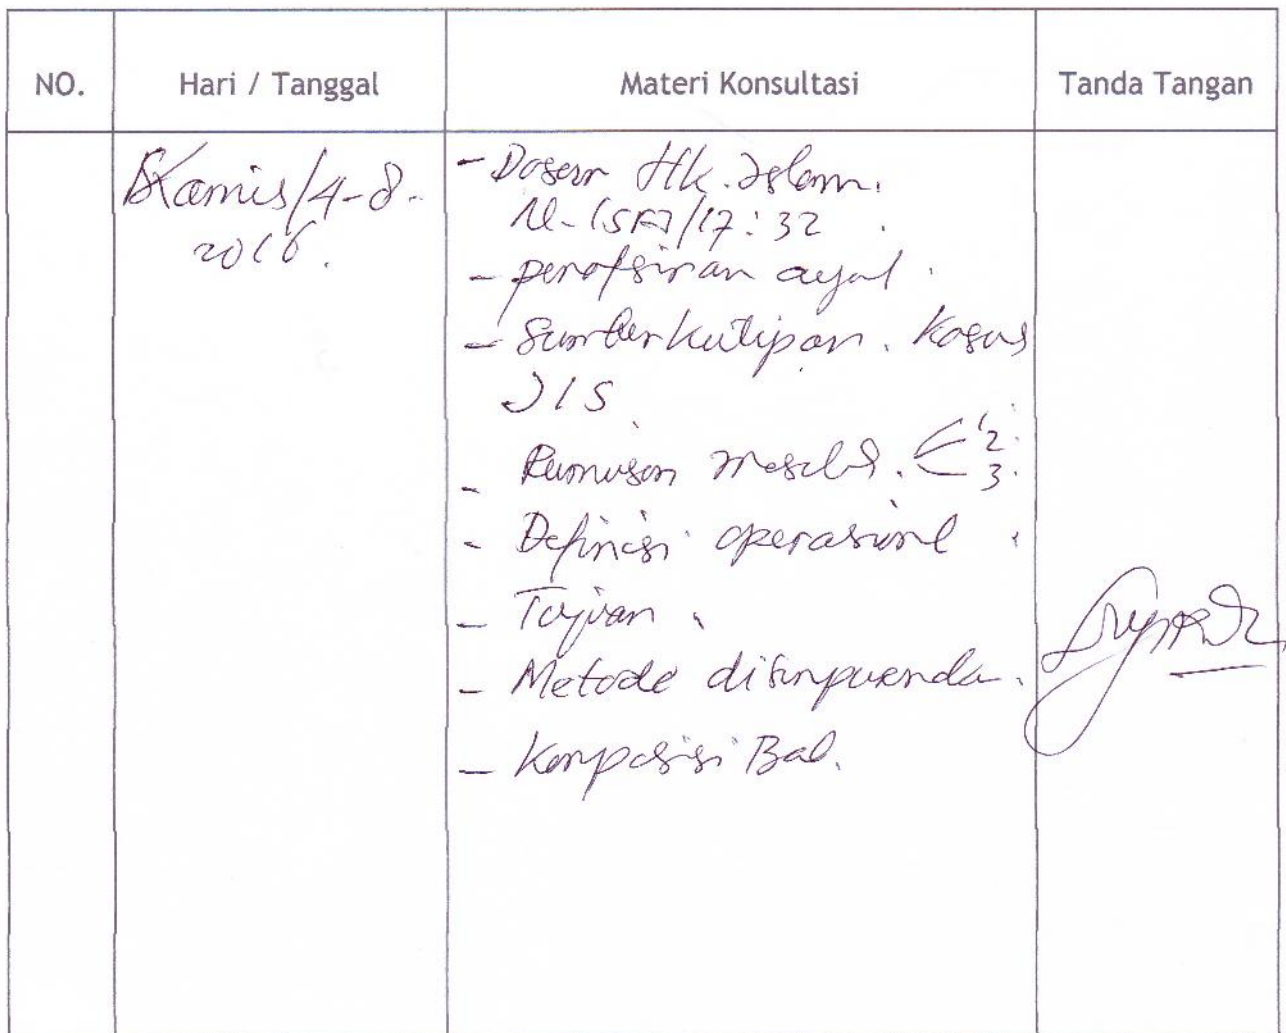 NO. Hari / Tanggal Materi Konsultasi Tanda Tangan
Kamis/4-8- - Dasar Hk. Islam.
2016. 17:32
- penafsiran ayat.
- Sumber kutipan. Kasus
JIS
- Rumusan masalah. 1 2. 3.
- Definisi operasional.
- Tujuan.
- Metode
- Komposisi Bab.